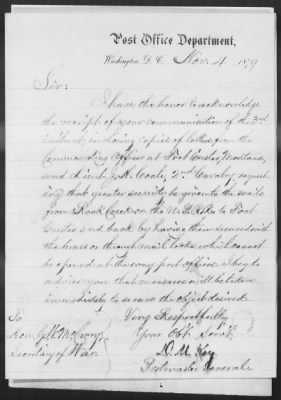 Post Office Department,
Washington, D.C. Nov. 4 1879
Sir:
I have the honor to acknowledge
the receipt of your communication of the 3rd
instant, inclosing copies of letters from the
Commanding Officer at Fort Custer, Montana,
and Lieut. J. K. Cooley 2nd Cavalry request-
ing that greater security be given to the mails
from Rock Creek on the U. P. R.R. to Fort
Custer and back by having them secured with
the brass or through mail locks which cannot
be opened at the way post offices. I beg to
advise you that measures will be taken
immediately to secure the object desired.
Very Respectfully
Your Obt. Servt.
D. M. Key
Postmaster General
To
Hon. G. W. McCrary
Secretary of War